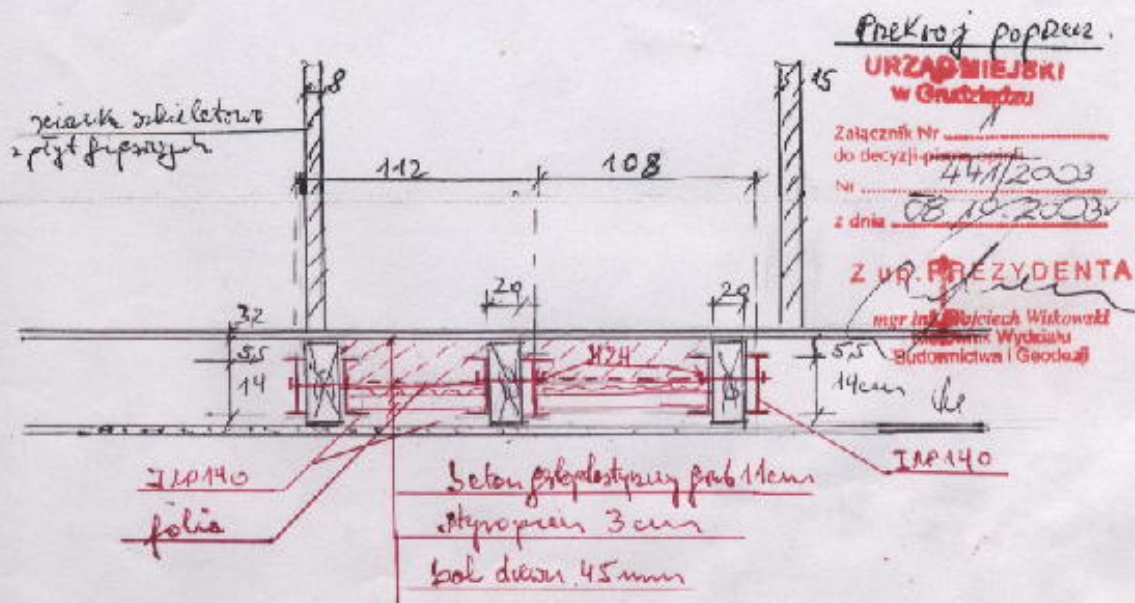 Przekrój poprzecz.
URZĄD MIEJSKI
w Grudziądzu
Załącznik Nr 1
do decyzji pisma opinii
Nr 441/2003
z dnia 08.10.2003r
Z up. PREZYDENTA
mgr inż. Wojciech Witkowski
Kierownik Wydziału
Budownictwa i Geodezji
ścianka szkieletowa
z płyt gipsowych
8
15
112
108
20
20
32
5,5
14
M24
5,5
14cm
INP140
folia
INP140
beton gęstoplastyczny grub 11cm
styropian 3cm
bal drewn. 45mm